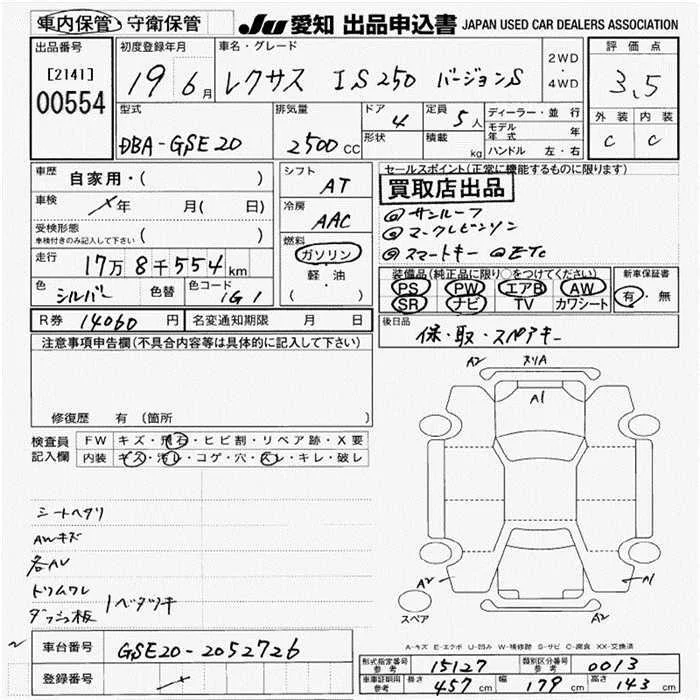 車内保管・守衛保管 JU 愛知 出品申込書 JAPAN USED CAR DEALERS ASSOCIATION
出品番号 初度登録年月 車名・グレード 2WD・4WD 評価点
[2141] 19 6月 レクサス IS250 バージョンS 3.5
00554
型式 排気量 ドア 4 定員 5人 ディーラー・並行 外装 内装
DBA-GSE20 2500CC 形状 積載 kg モデル年式 年 C C
ハンドル 左・右
車歴 自家用・( ) シフト AT セールスポイント(正常に機能するものに限ります)
車検 年 月( 日) 冷房 AAC 買取店出品
受検形態 ( ) @サンルーフ
車検付きのみ記入して下さい @マークレビンソン
走行 17万8千554km 燃料 ガソリン @スマートキー @ETC
軽・油 装備品(純正品に限り○をつけてください) 新車保証書
色 シルバー 色替 色コード 1G1 ( ) PS PW エアB AW 有・無
SR ナビ TV カワシート
R券 14060円 名変通知期限 月 日 後日品
注意事項申告欄(不具合内容等は具体的に記入して下さい) 保・取・スペアキー
A2 スリA
A1
修復歴 有 (箇所
検査員記入欄 FW キズ・飛石・ヒビ割・リペア跡・X要
内装 キズ・汚レ・コゲ・穴・スレ・キレ・破レ
シートヘタリ
AWキズ
各AU
トリムワレ
ダッシュ板 ベタツキ
A2 A1
スペア A2
A-キズ E-エクボ U-凹み W-補修跡 S-サビ C-腐食 XX-交換済
車台番号 GSE20-2052726
登録番号
形式指定番号参考 15127 類別区分番号参考 0013
車庫証明用参考 長さ 457cm 幅 179cm 高さ 143cm